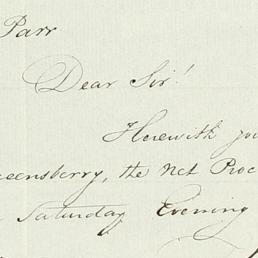 Parr
Dear Sir!
Herewith you
eensberry, the net Proc
Saturday Evening